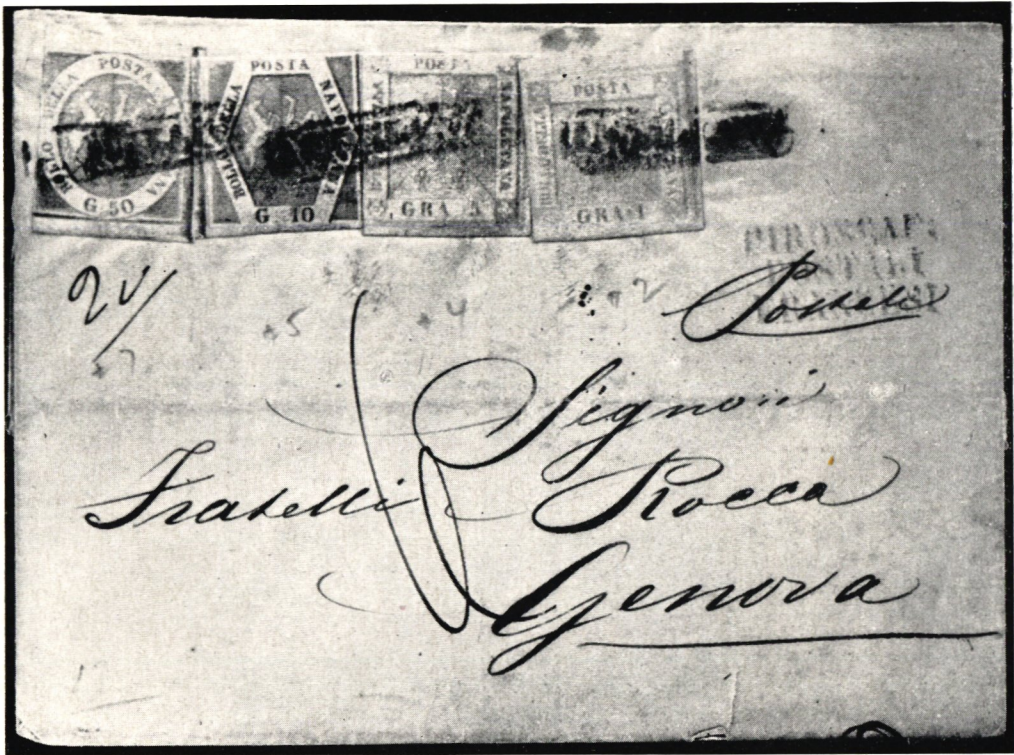 BOLLO DELLA POSTA NAPOLETANA
G 50
BOLLO DELLA POSTA NAPOLETANA
G 10
POSTA NAPOLETANA
GRA 5
BOLLO DELLA POSTA NAPOLETANA
GRA 1
PIROSCAFI
POSTALI
Postale
5
4
2
7
Signori
Fratelli Rocca
Genova